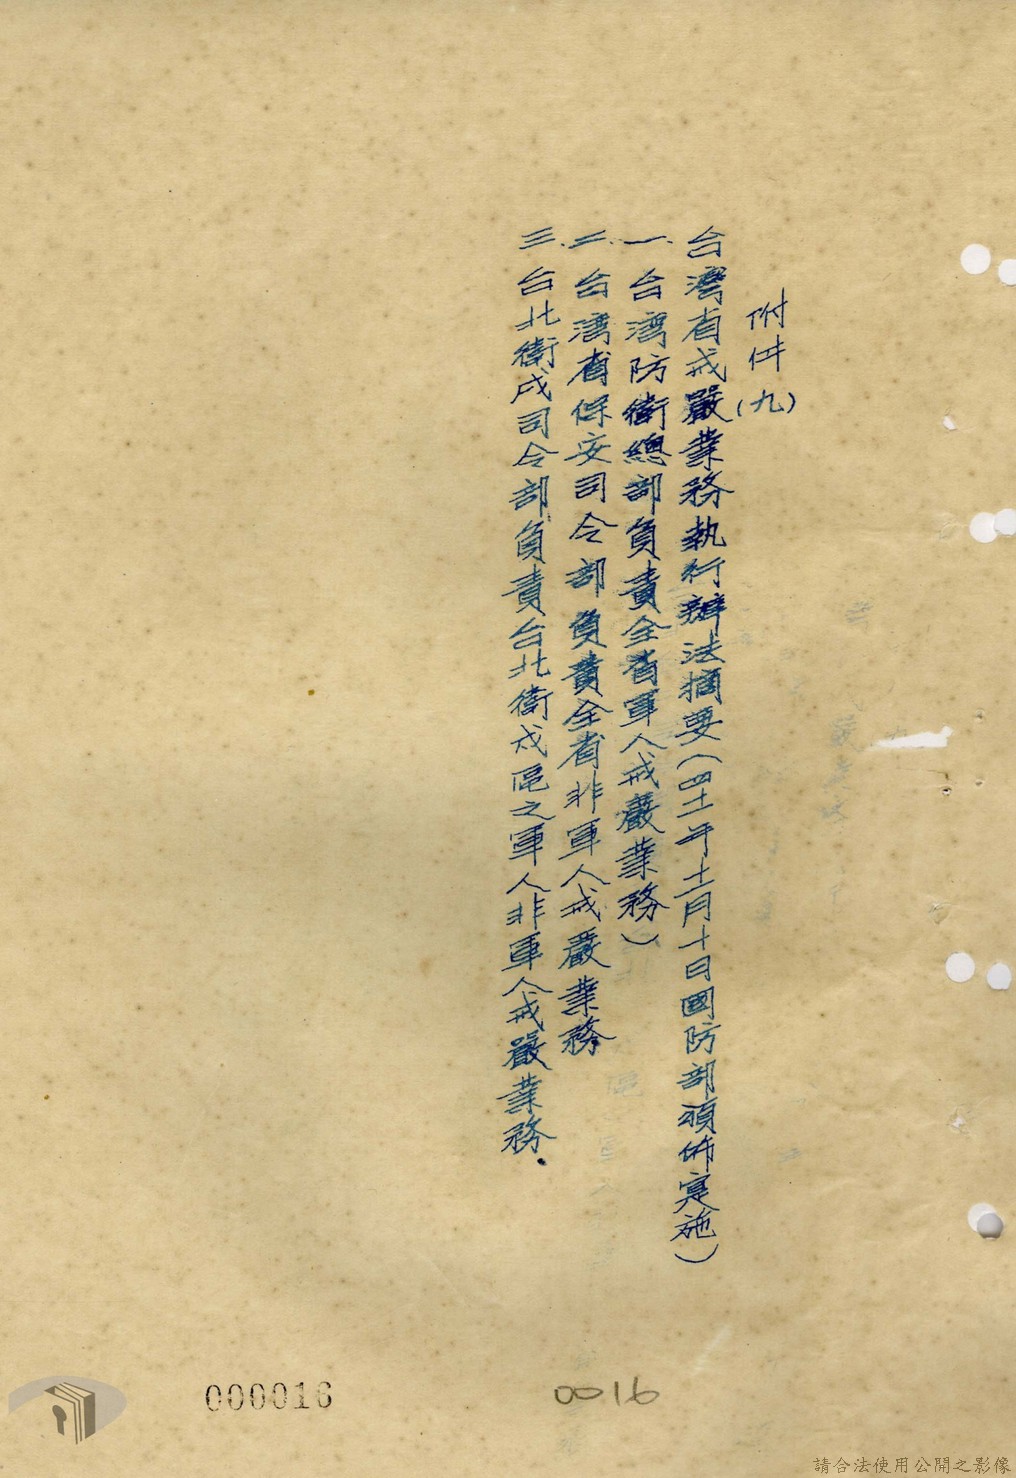 附件(九)
台灣省戒嚴業務執行辦法摘要(四十一年十二月十日國防部頒佈實施)
一.台灣防衛總部負責全省軍人戒嚴業務)
二.台灣省保安司令部負責全省非軍人戒嚴業務
三.台北衛戍司令部負責台北衛戍區之軍人非軍人戒嚴業務.
000016
0016
請合法使用公開之影像